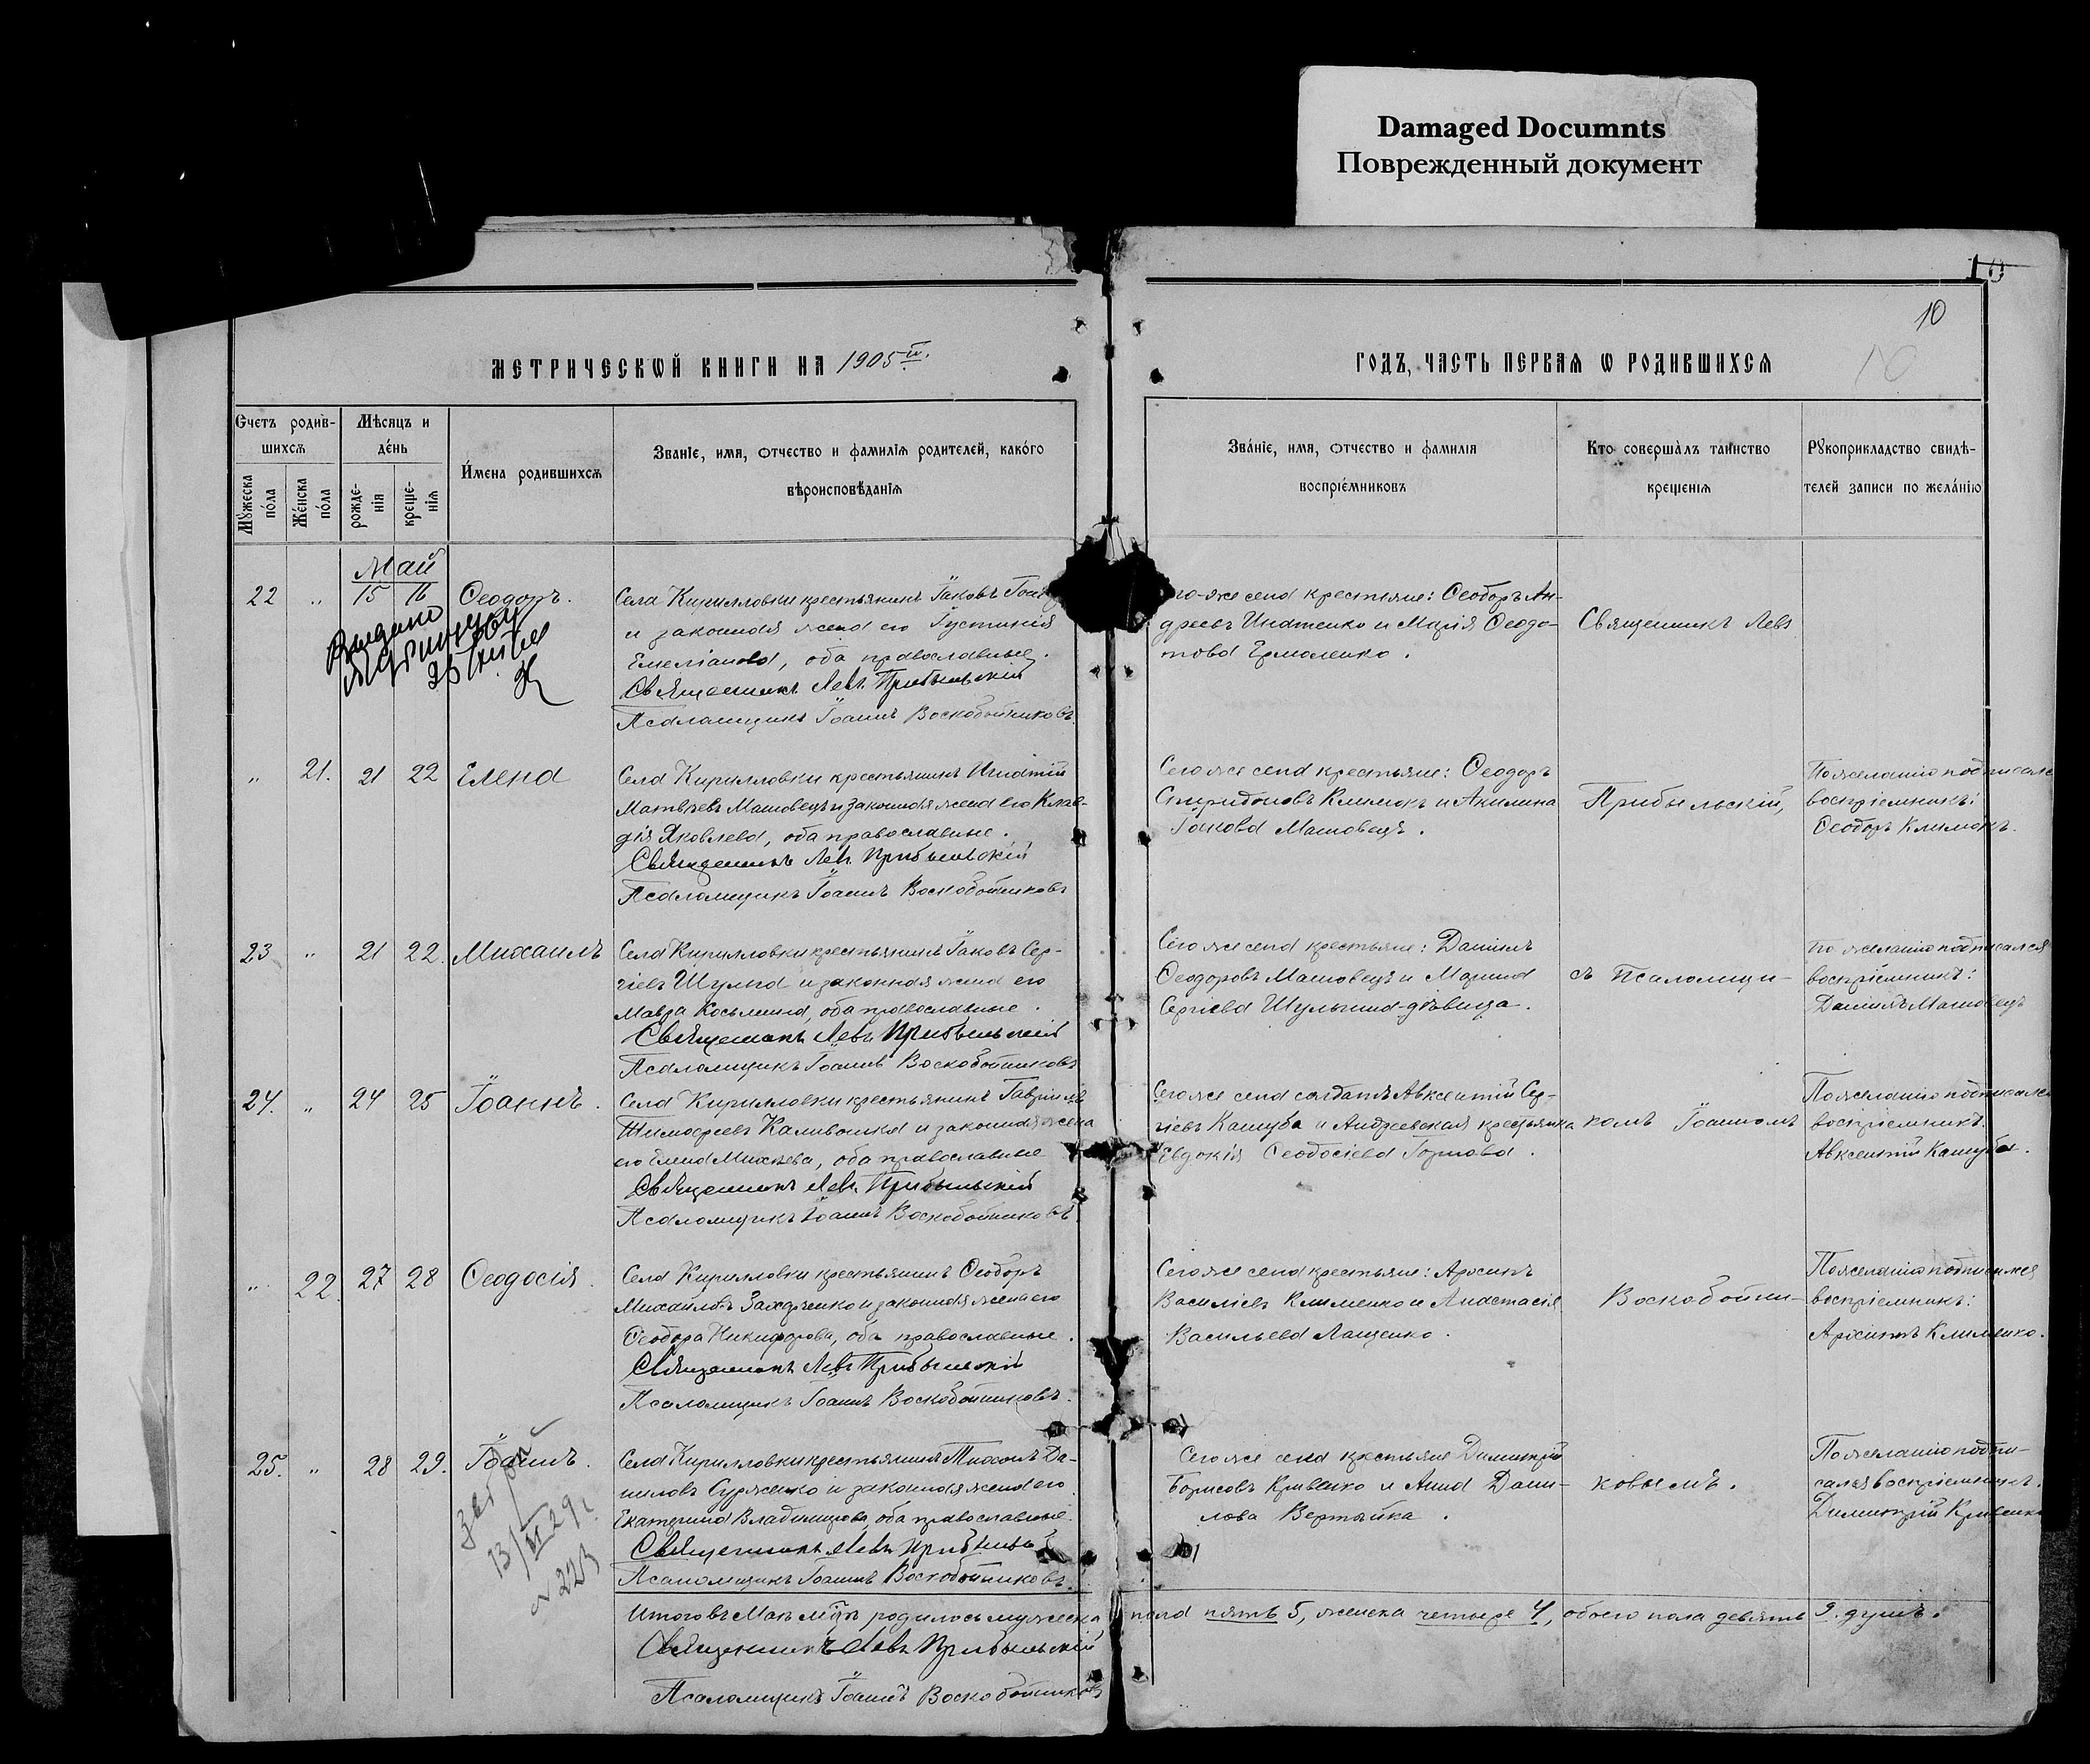 Damaged Documnts
Поврежденный документ
10
10
10
МЕТРИЧЕСКѠЙ КНИГИ НА 1905й.
ГОДЪ, ЧАСТЬ ПЕРВАЯ Ѡ РОДИВШИХСЯ
Счетъ родив-
шихся
Мѣсяцъ и
день
Имена родившихся
Званіе, имя, отчество и фамилія родителей, какого
вѣроисповѣданія
Мужеска
пола
Женска
пола
рожде-
нія
креще-
нія
Званіе, имя, отчество и фамилія
воспріемниковъ
Кто совершалъ таинство
крещенія
Рукоприкладство свидѣ-
телей записи по желанію
Май
22 " 15 16 Ѳеодоръ.
Села Кирилловки крестьянинъ Іаковъ
и законная жена его Іустинія
Емеліанова, оба православные.
Священникъ Левъ Прибыльскій
Псаломщикъ Іоаннъ Воскобойниковъ.
село крестьяне: Ѳеодоръ Ан-
дреевъ Игнатенко и Марія Ѳеодо-
това Ермоленко.
Священникъ Левъ
" 21. 21 22 Елена
Села Кирилловки крестьянинъ Игнатій
Матвѣевъ Машовецъ и законная жена его Клав-
дія Яковлева, оба православные.
Священникъ Левъ Прибыльскій
Псаломщикъ Іоаннъ Воскобойниковъ
Сего же села крестьяне: Ѳеодоръ
Спиридоновъ Климокъ и Акилина
Іаковова Машовецъ.
Прибыльскій,
По желанію подписался
воспріемникъ:
Ѳеодоръ Климокъ.
23 " 21 22. Михаилъ
Села Кирилловки крестьянинъ Іаковъ Сер-
гіевъ Шульга и законная жена его
Мавра Косьмина, оба православные.
Священникъ Левъ Прибыльскій
Псаломщикъ Іоаннъ Воскобойниковъ
Сего же села крестьяне: Даніилъ
Ѳеодоровъ Машовецъ и Марина
Сергіева Шульгина дѣвица.
съ псаломщи-
По желанію подписался
воспріемникъ:
Даніилъ Машовецъ
24. " 24 25 Іоаннъ.
Села Кирилловки крестьянинъ Гавріилъ
Тимоѳеевъ Калив и законная жена
его Елена Михеева, оба православные
Священникъ Левъ Прибыльскій
Псаломщикъ Іоаннъ Воскобойниковъ.
Сего же села солдатъ Авксентій Сер-
гіевъ Кашуба и Андреевская крестьянка
Евдокія Ѳеодосіева Горлова.
комъ Іоанномъ
По желанію подписался
воспріемникъ:
Авксентій Кашуба.
" 22. 27 28 Ѳеодосія.
Села Кирилловки крестьянинъ Ѳеодоръ
Михайловъ Захарченко и законная жена его
Ѳеодора Никифорова, оба православные.
Священникъ Левъ Прибыльскій
Псаломщикъ Іоаннъ Воскобойниковъ.
Сего же села крестьяне: Арсеній
Василіевъ Клименко и Анастасія
Васильева Лащенко.
Воскобойни-
По желанію подписался
воспріемникъ:
Арсеній Клименко.
25. " 28 29. Іоаннъ.
Села Кирилловки крестьянинъ Тихонъ Да-
ниловъ Сурженко и законная жена его
Екатерина Владимірова, оба православные.
Священникъ Левъ Прибыльскій
Псаломщикъ Іоаннъ Воскобойниковъ.
Сего же села крестьяне Димитрій
Борисовъ Кривенко и Анна Дани-
лова Вертайка.
ковымъ.
По желанію подпи-
сался воспріемникъ:
Димитрій Кривенко
Итого въ Маѣ мѣсяцѣ родилось мужеска пола пять 5, женска четыре 4, обоего пола девять 9. душъ.
Священникъ Левъ Прибыльскій
Псаломщикъ Іоаннъ Воскобойниковъ